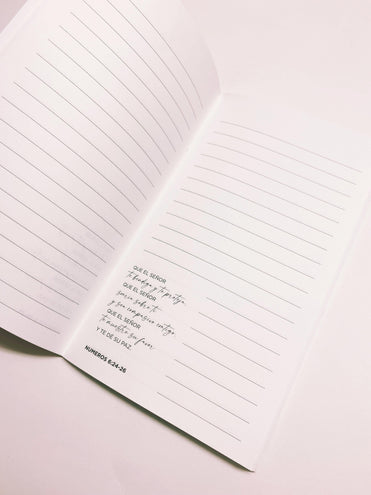 QUE EL SEÑOR
te bendiga y te proteja,
QUE EL SEÑOR
sonría sobre ti
y sea compasivo contigo,
QUE EL SEÑOR
te muestre su favor
Y TE DE SU PAZ.
NÚMEROS 6:24-26